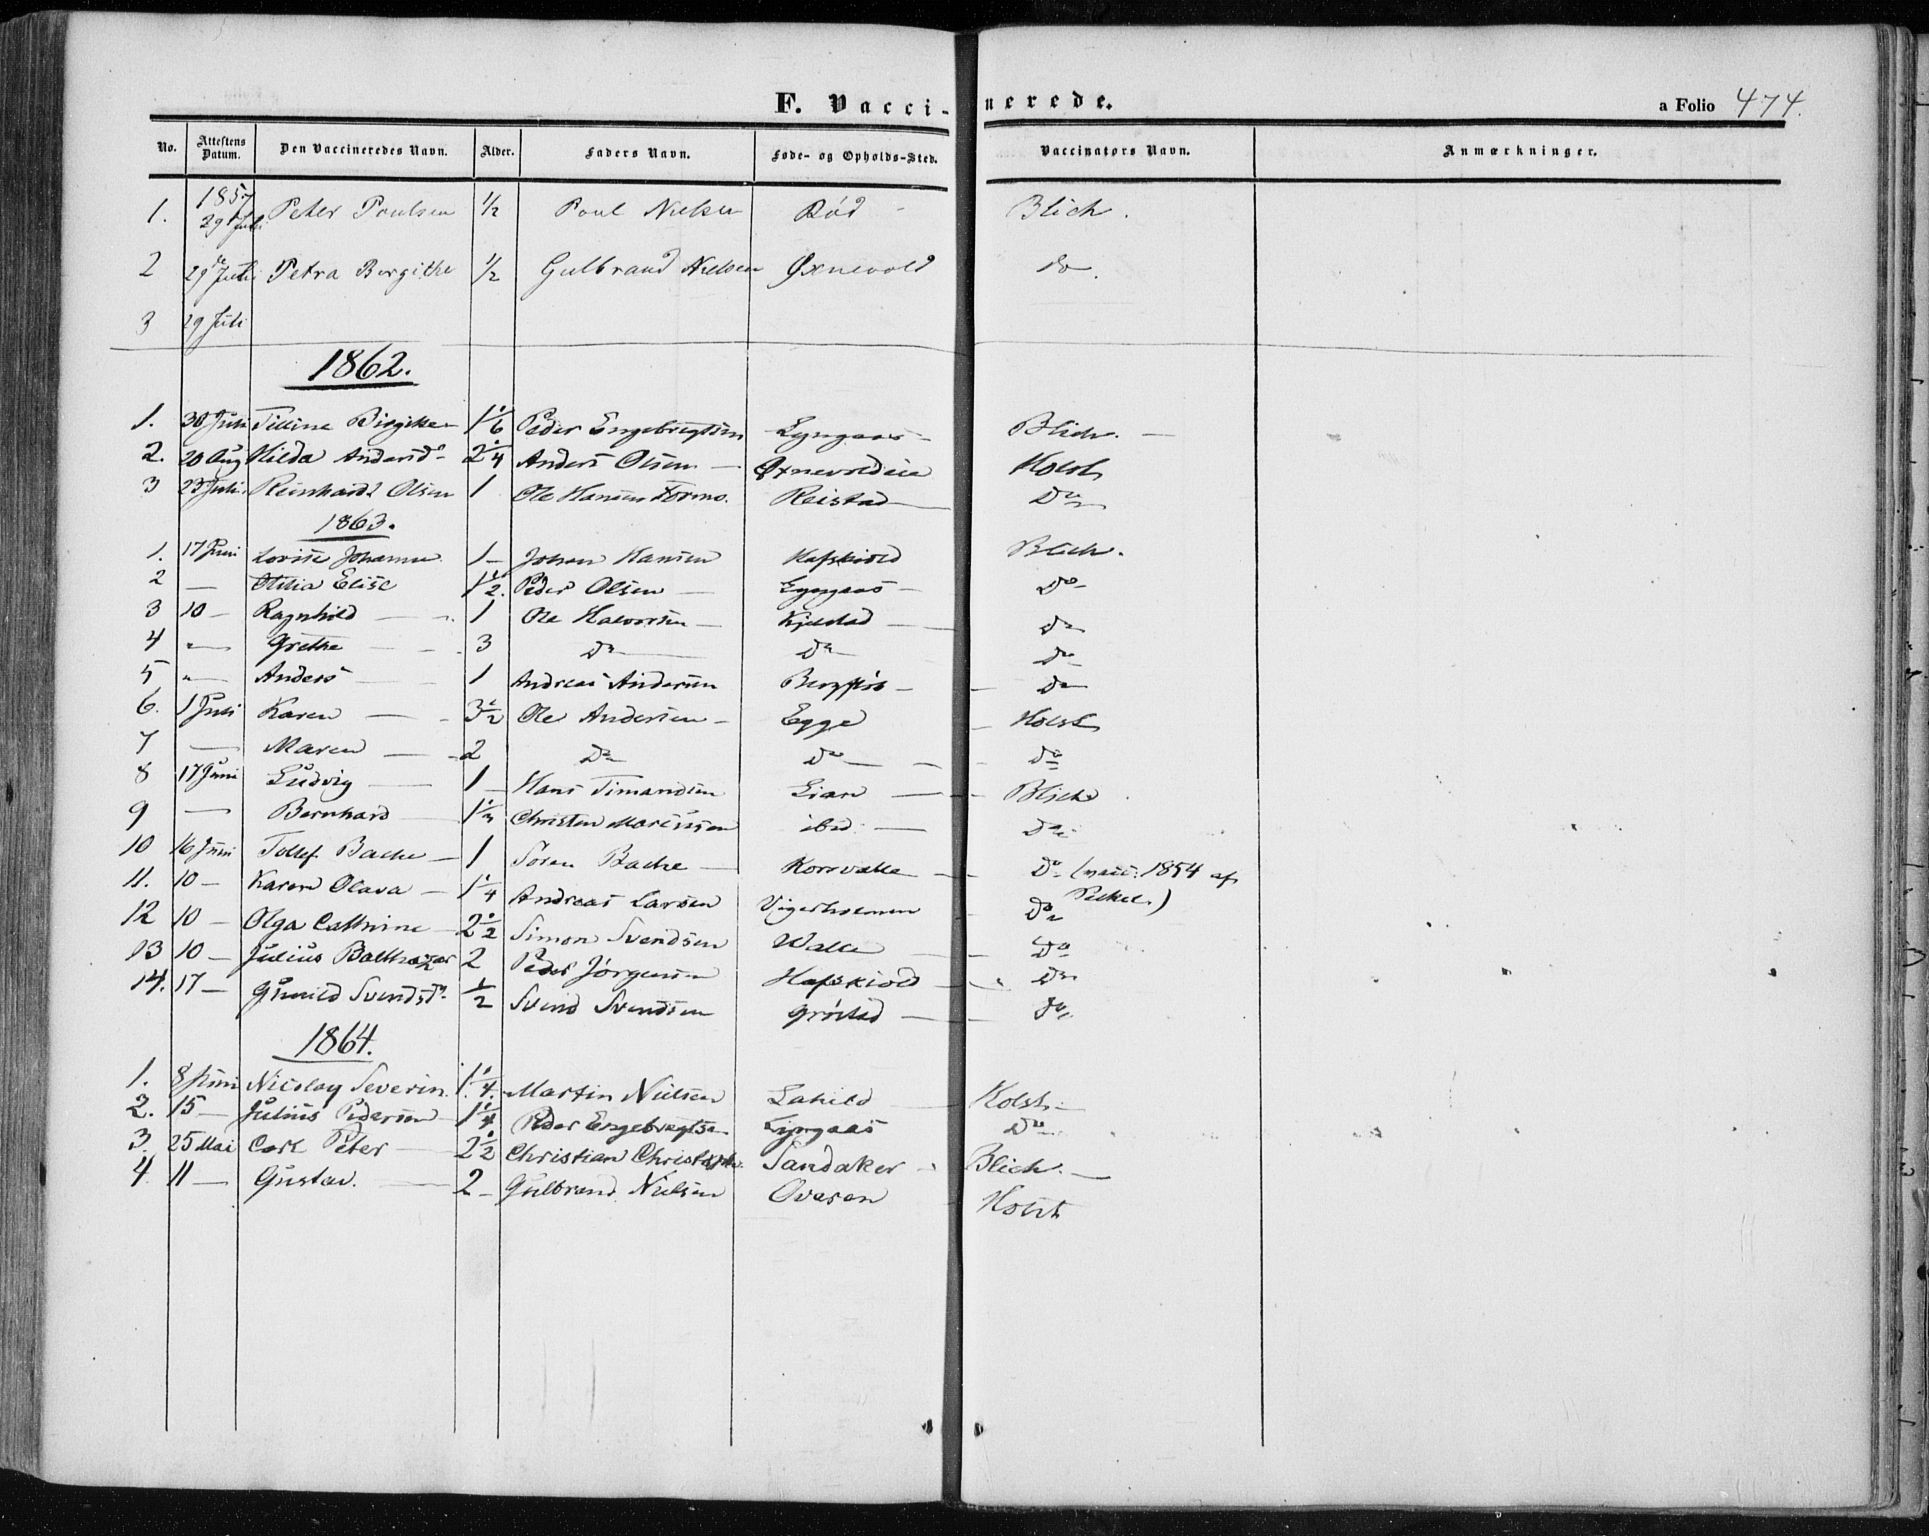 F. Vaccinerede. a Folio 474.
No. Attestens Datum. Den Vaccineredes Navn. Alder. Faders Navn. Føde- og Opholds-Sted. Vaccinators Navn. Anmærkninger.
1857
1. 29 Juli Peter Poulsen 1/2 Poul Nielsen Röd Blich.
2 29 Juli Petra Børgithe 1/2 Gulbrand Nielsen Øxnevold do.
3 29 Juli
1862.
1. 30 Juli Birgithe 1 1/6 Peder Engebregtsen Lyngaas Blich.
2. 20 Aug Hilda Andersd. 2 1/4 Anders Olsen Øxnevoldeie Holst
3 23 Juli Reinhardt Olsen 1 Ole Hansen Formo. Reistad Do
1863.
1. 17 Juni Lovise Johanne 1 Johan Hansen Hafskiold Blich.
2 — Otilia Elise 1 1/2. Peder Olsen Lyngaas Do
3 10 — Ragnhild 1 Ole Halvorsen Kjelstad Do
4 " — Grethe 3 Do Do Do
5 " — Anders 1 Andreas Andersen Do
6. 1 Juli Karen 3 1/2 Ole Andersen Egge Holst
7 — Maren 2 Do Do Do
8 17 Juni Ludvig 1 Hans Timandsen Lian Blich
9 — Bernhard 1 1/3 Christen Mariussen ibid. Do
10 16 Juni Tollef Bache 1 Søren Bache Korsvalle Do (vacc. 1854 af
11. 10 — Karen Olava 1 1/4 Andreas Larsen Vigerholmen Do
12 10 — Olga Cathrine 2 1/2 Simon Svendsen Walle Do
13 10 — Julius Balthazar 2 Peder Jørgensen Hafskiold Do
14. 17 — Gunild Svendsd. 1/2 Svend Svendsen Grøstad Do
1864.
1. 8 Juni Nicolay Severin. 1 1/4. Martin Nielsen Lahild Holst
2. 15 — Julius Pedersen 1 1/4 Peder Engebregtsen Lyngaas Do
3. 25 Mai Carl Peter 2 1/2 Christian Christoph. Sandaker Blich.
4. 11 — Gustav. 2 Gulbrand Nielsen Ovesen Holst